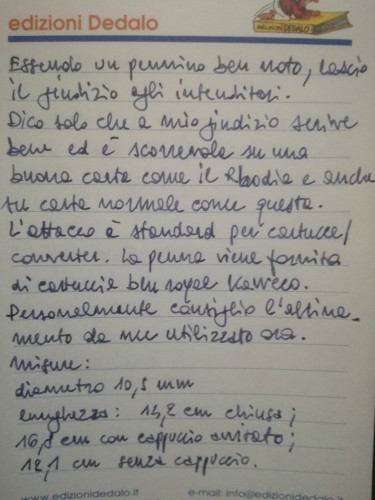 edizioni Dedalo
EDIZIONI DEDALO
Essendo un pennino ben noto, lascio
il giudizio agli intenditori.
Dico solo che a mio giudizio scrive
bene ed è scorrevole su una
buona carta come il Rhodia e anche
su carta normale come questa.
L'attacco è standard per cartucce/
converter. La penna viene fornita
di cartuccia blu royal Kaweco.
Personalmente consiglio l'abbina-
mento da me utilizzato ora.
Misure:
diametro 10,5 mm
lunghezza: 14,2 cm chiusa;
16,8 cm con cappuccio avvitato;
12,1 cm senza cappuccio.
www.edizionidedalo.it e-mail: info@edizionidedalo.it